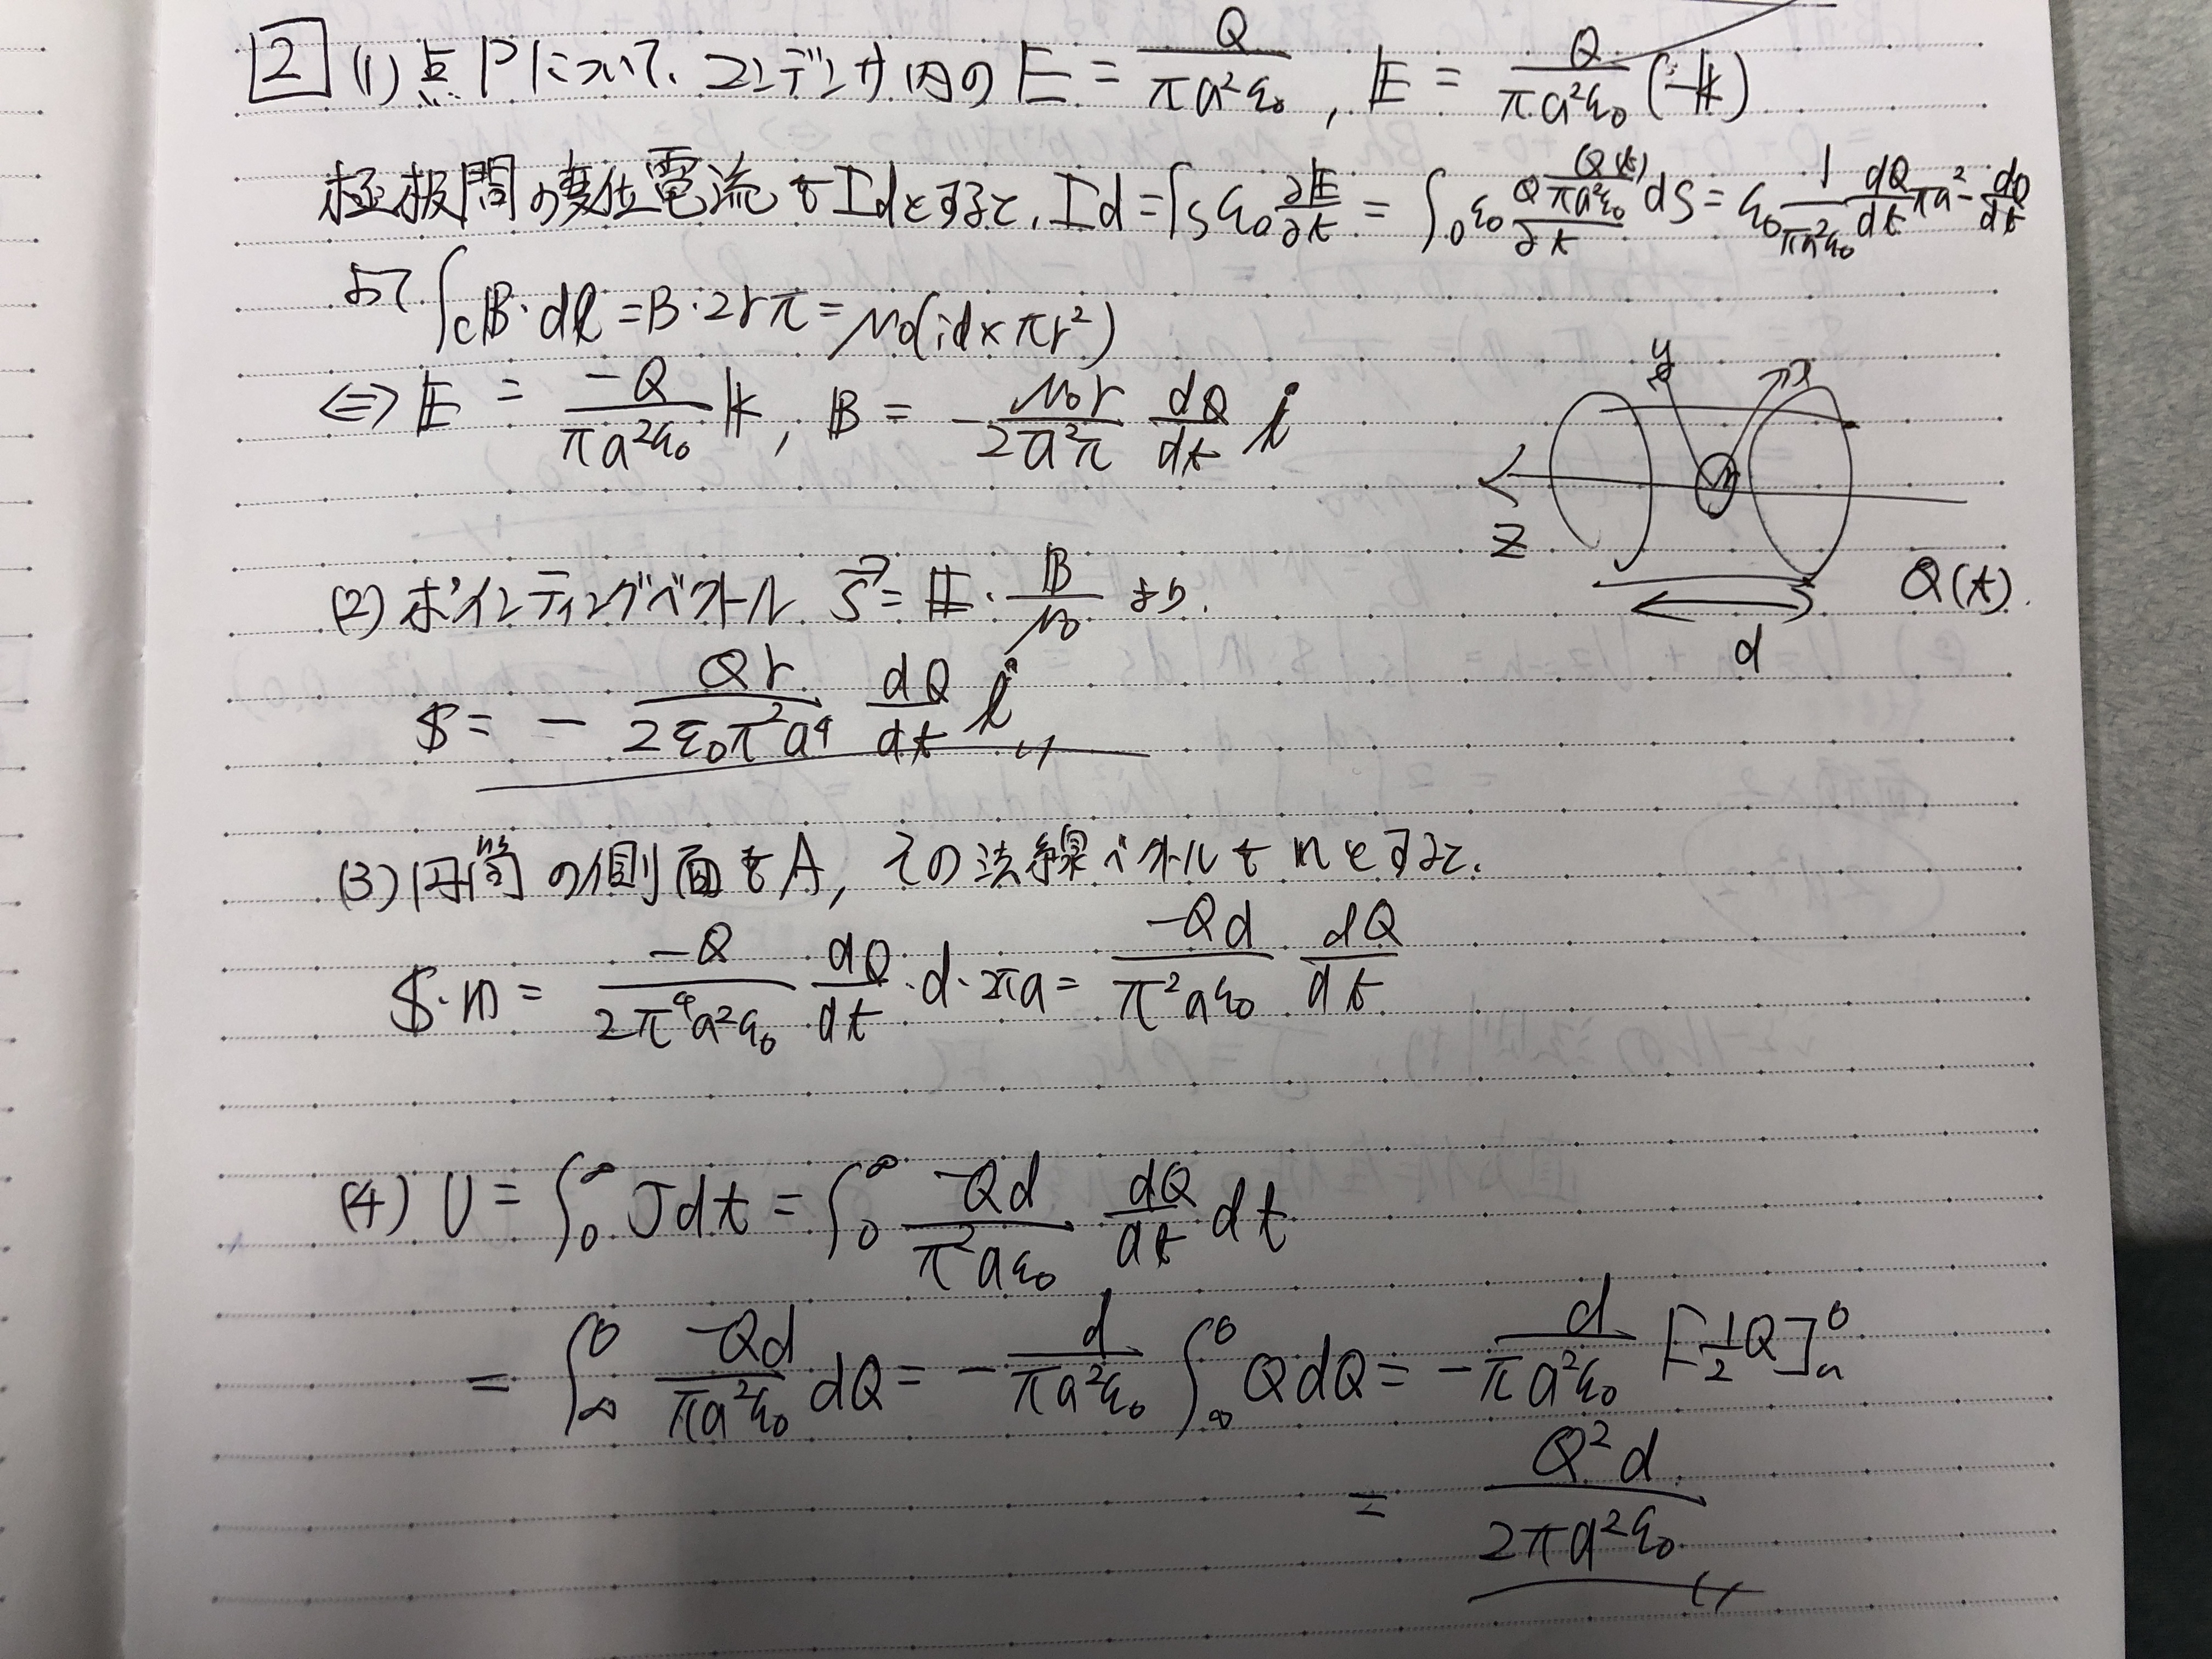 2 (1) 点Pについて、コンデンサ内の E = Q/πa²ε₀ , E = Q/πa²ε₀ (-k)
極板間の変位電流をIdとすると、Id = ∫s ε₀ ∂E/∂t = ∫₀ ε₀ ∂ Q(t)/πa²ε₀ / ∂t dS = ε₀ 1/πa²ε₀ dQ/dt πa² = dQ/dt
よって ∫c B・dl = B・2rπ = μ₀(id×πr²)
⇔ E = -Q/πa²ε₀ k , B = - μ₀r/2a²π dQ/dt i
y x
z
Q(t).
d
(2) ポインティングベクトル S = E・B/μ₀ より.
S = - Qr/2ε₀π²a⁴ dQ/dt i
(3) 円筒の側面をA, その法線ベクトルをnとすると.
S・n = -Q/2π⁴a²ε₀ dQ/dt ・d・2πa = -Qd/π²aε₀ dQ/dt
(4) U = ∫₀^∞ J dt = ∫₀^∞ -Qd/π²aε₀ dQ/dt dt
= ∫∞^0 -Qd/πa²ε₀ dQ = - d/πa²ε₀ ∫∞^0 QdQ = - d/πa²ε₀ [1/2 Q]a^0
= Q²d/2πa²ε₀